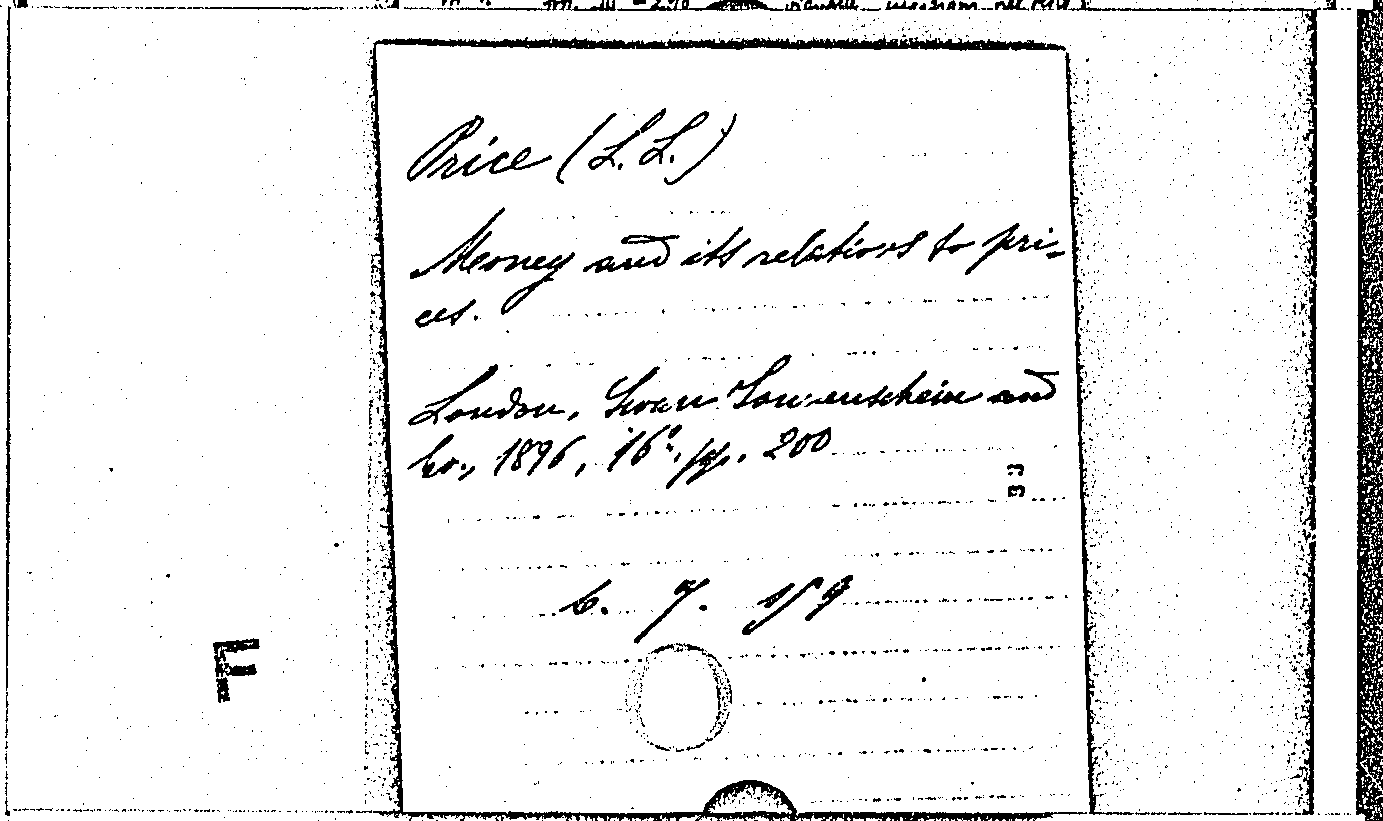 Price (L. L.)
Money and its relations to pri-
ces.
London, Swan Sonnenschein and
Co., 1896, 16°. pp. 200
6. 7.